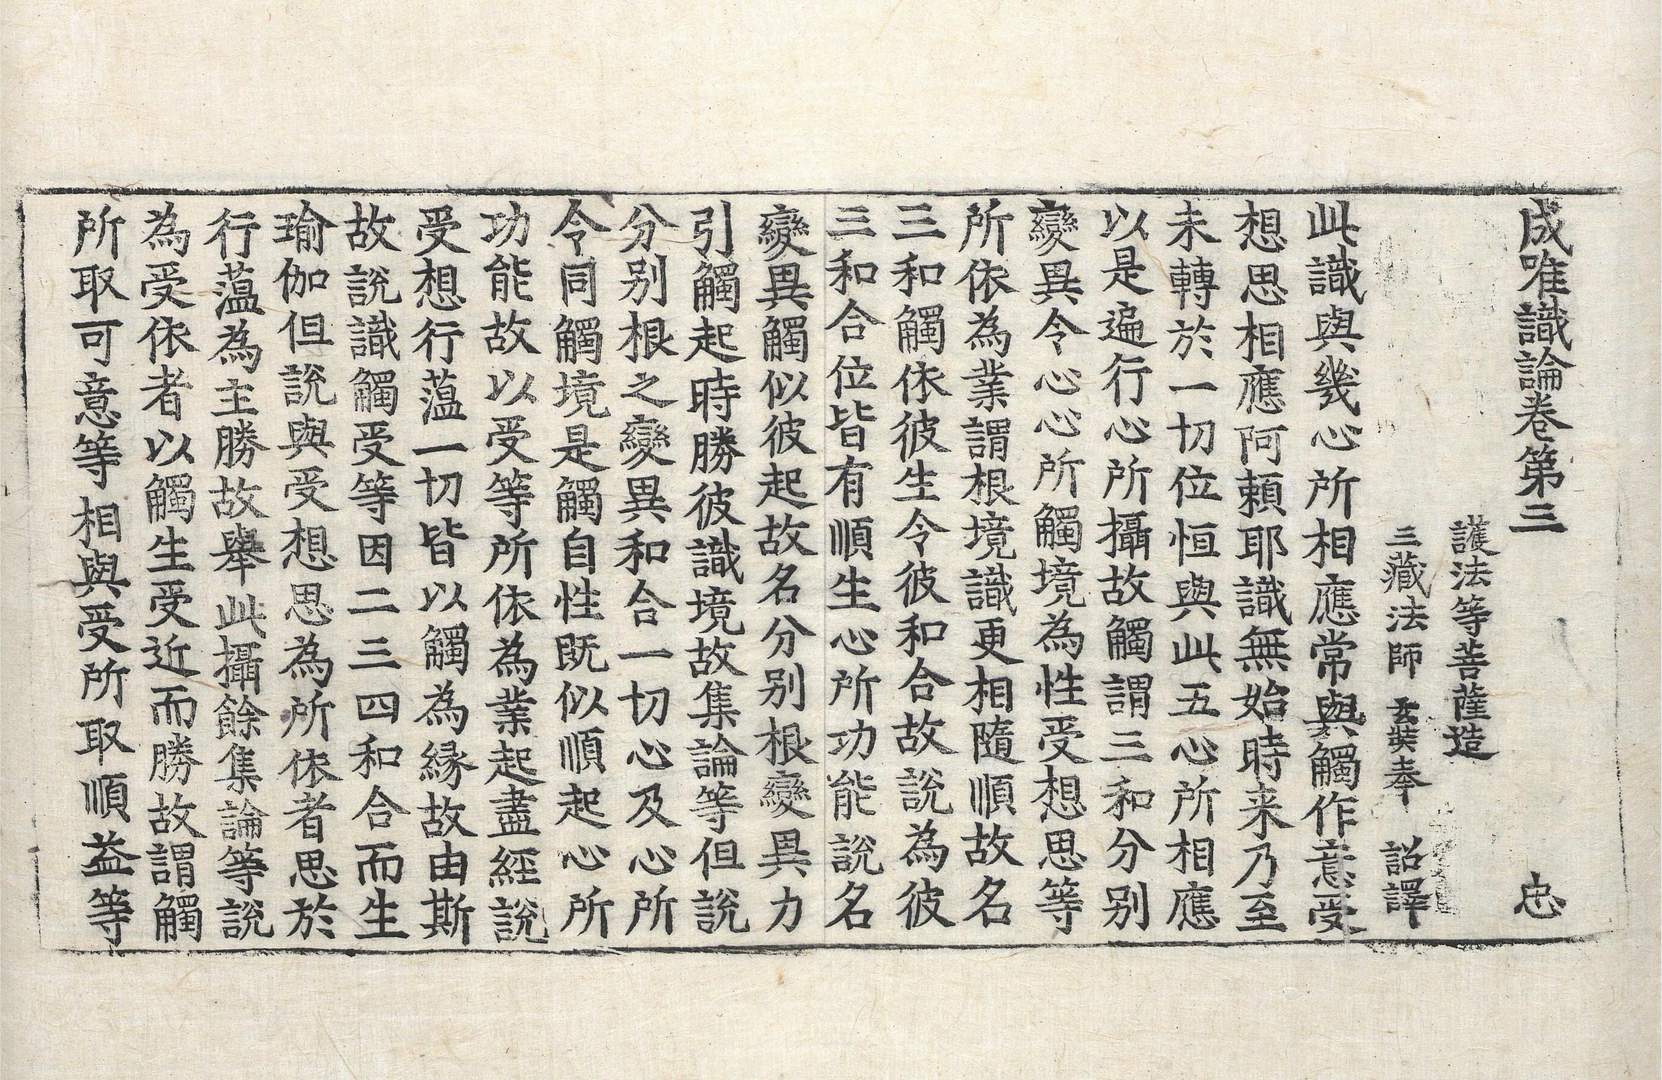 成唯識論卷第三 忠
護法等菩薩造
三藏法師 玄奘奉 詔譯
此識與幾心所相應常與觸作意受
想思相應阿賴耶識無始時来乃至
未轉於一切位恒與此五心所相應
以是遍行心所攝故觸謂三和分別
變異令心心所觸境為性受想思等
所依為業謂根境識更相隨順故名
三和觸依彼生令彼和合故說為彼
三和合位皆有順生心所功能說名
變異觸似彼起故名分別根變異力
引觸起時勝彼識境故集論等但說
分別根之變異和合一切心及心所
令同觸境是觸自性既似順起心所
功能故以受等所依為業起盡經說
受想行蘊一切皆以觸為緣故由斯
故說識觸受等因二三四和合而生
瑜伽但說與受想思為所依者思於
行蘊為主勝故舉此攝餘集論等說
為受依者以觸生受近而勝故謂觸
所取可意等相與受所取順益等